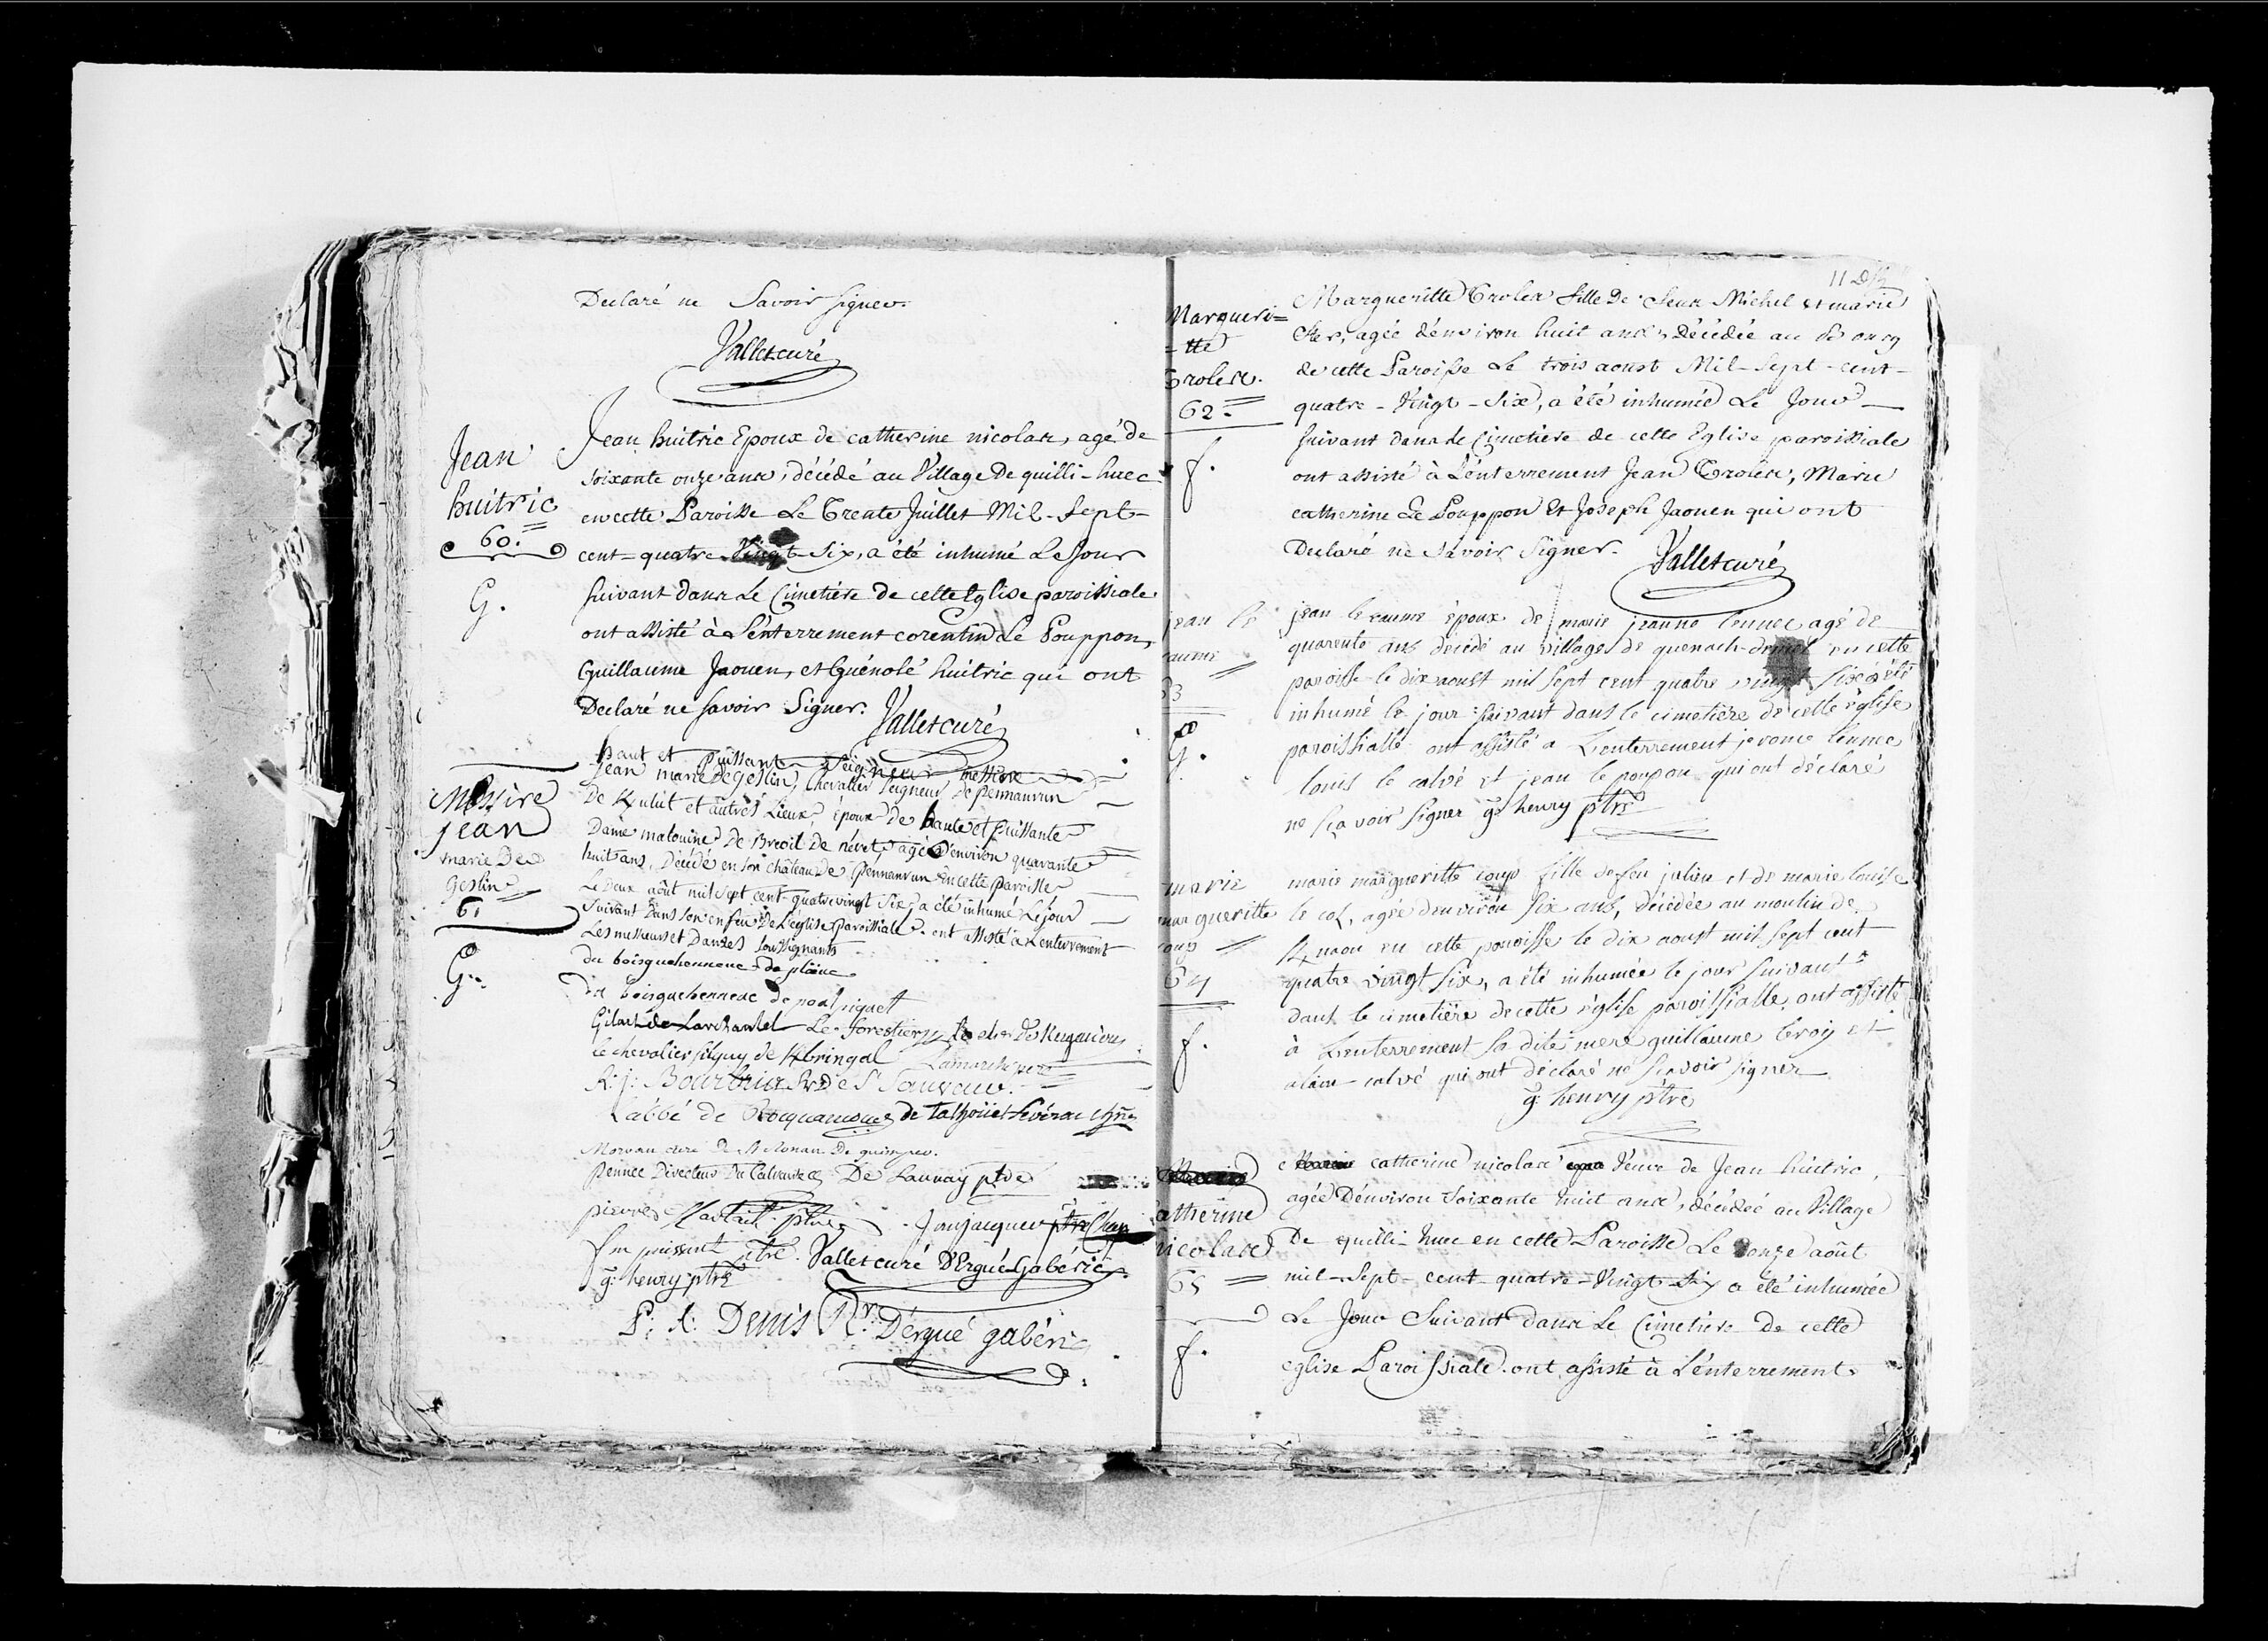 Declaré ne Savoir signer.
Vallet curé
Jean
huitric
60.
G.
Jean huitric Epoux de catherine nicolas, agé de
soixante onze ans, décédé au Village De quilli-huec
en cette Paroisse Le Trente Juillet Mil-Sept-
cent-quatre-Vingt-Six, a été inhumé Le Jour
suivant dans Le Cimetière de cette Eglise paroissiale
ont assisté à L'énterrement corentin Le Pouppon,
Guillaume Jaouen, et Guénolé huitric qui ont
Declaré ne savoir Signer. Vallet curé
Messire
jean
marie De
Geslin
61
G.
haut et Puissant Seigneur Messire
Jean marie De Geslin, Chevalier Seigneur De pennanrun
De et autres Lieux, époux de haute et Puissante
Dame malouine De Breoil De névet, agé D'environ quarante
huit ans, Décédé en son château De Pennanrun en cette Paroisse
Le Deux août mil sept cent quatre vingt Six, a été inhumé Le jour
Suivant Dans son enfeu De L'église Paroissiale. ont assisté à L'enterrement
Les messieurs et Dames Soussignants
du boisguehenneuc de ploeuc
du boisguehenneuc de poulpiquet
Gilart de Larchantel Le forestier
le chevalier silguy de
Bourbria De St Sauveur.
L'abbé de de talhouet Sévérac
Morvan curé De St Ronan De quimper.
pennec Directeur Du Calvaire De Launay ptre
pierre ptre
puissant ptre. Vallet curé D'Ergué Gabéric
g: henry ptre
P: A: Denis Rr. D'ergué gabéric
Margueri=
=tte
Trolez.
62.
f.
Margueritte Trolez fille De Jean Michel et marie
agée d'énviron huit ans, Décédée au Bourg
de cette Paroisse Le trois aoust Mil-Sept-cent-
quatre-Vingt-Six, a été inhumée Le Jour
suivant dans le Cimetière de cette Eglise paroissiale
ont assisté à L'énterrement Jean Trolez, Marie
catherine Le Pouppon Et Joseph Jaouen qui ont
Declaré ne Savoir Signer. Vallet curé
jean le
G.
jean le eaume époux de marie jeanne lennec agé de
quarente ans décédé au village de en cette
paroisse le dix aoust mil sept cent quatre vingt Six a été
inhumé le jour suivant dans le cimetière de cette église
paroissialle ont assisté a Lenterrement jerome lennec
louis le calvé et jean le poupon qui ont déclaré
ne sçavoir signer g: henry ptre
marie
margueritte
64
f.
marie margueritte coup fille de feu julien et de marie louise
le col, agée d'environ Six ans, décédée au moulin de
en cette paroisse le dix aoust mil sept cent
quatre vingt six, a été inhumée le jour suivant
dans le cimetière de cette église paroissialle, ont assisté
à Lenterrement sa dite mere guillaume leroy et
alain calvé qui ont déclaré ne sçavoir signer
g: henry ptre
catherine
nicolas
65
f.
catherine nicolas Veuve de Jean huitric,
agée D'énviron Soixante huit ans, décédée au Village
De quilli-huec en cette Paroisse Le onze août
mil-Sept-cent-quatre-Vingt-Six a été inhumée
Le Jour Suivant dans Le Cimetière De cette
eglise Paroissiale. ont assisté à L'énterrement